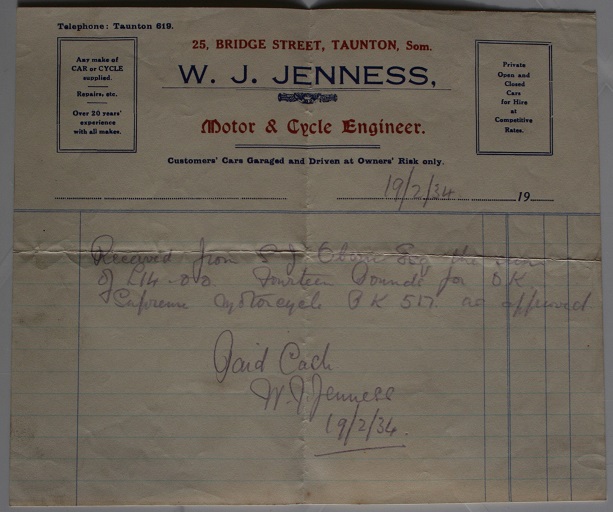 Telephone: Taunton 619.
25, BRIDGE STREET, TAUNTON, Som.
W. J. JENNESS,
Motor & Cycle Engineer.
Any make of
CAR or CYCLE
supplied.
Repairs, etc.
Over 20 years'
experience
with all makes.
Private
Open and
Closed
Cars
for Hire
at
Competitive
Rates.
Customers' Cars Garaged and Driven at Owners' Risk only.
19/2/34 19
Received from S J Esq the sum
of £14-0-0 Fourteen Pounds for O K
Supreme Motorcycle 517 as approved
Paid Cash
W. J Jenness
19/2/34.